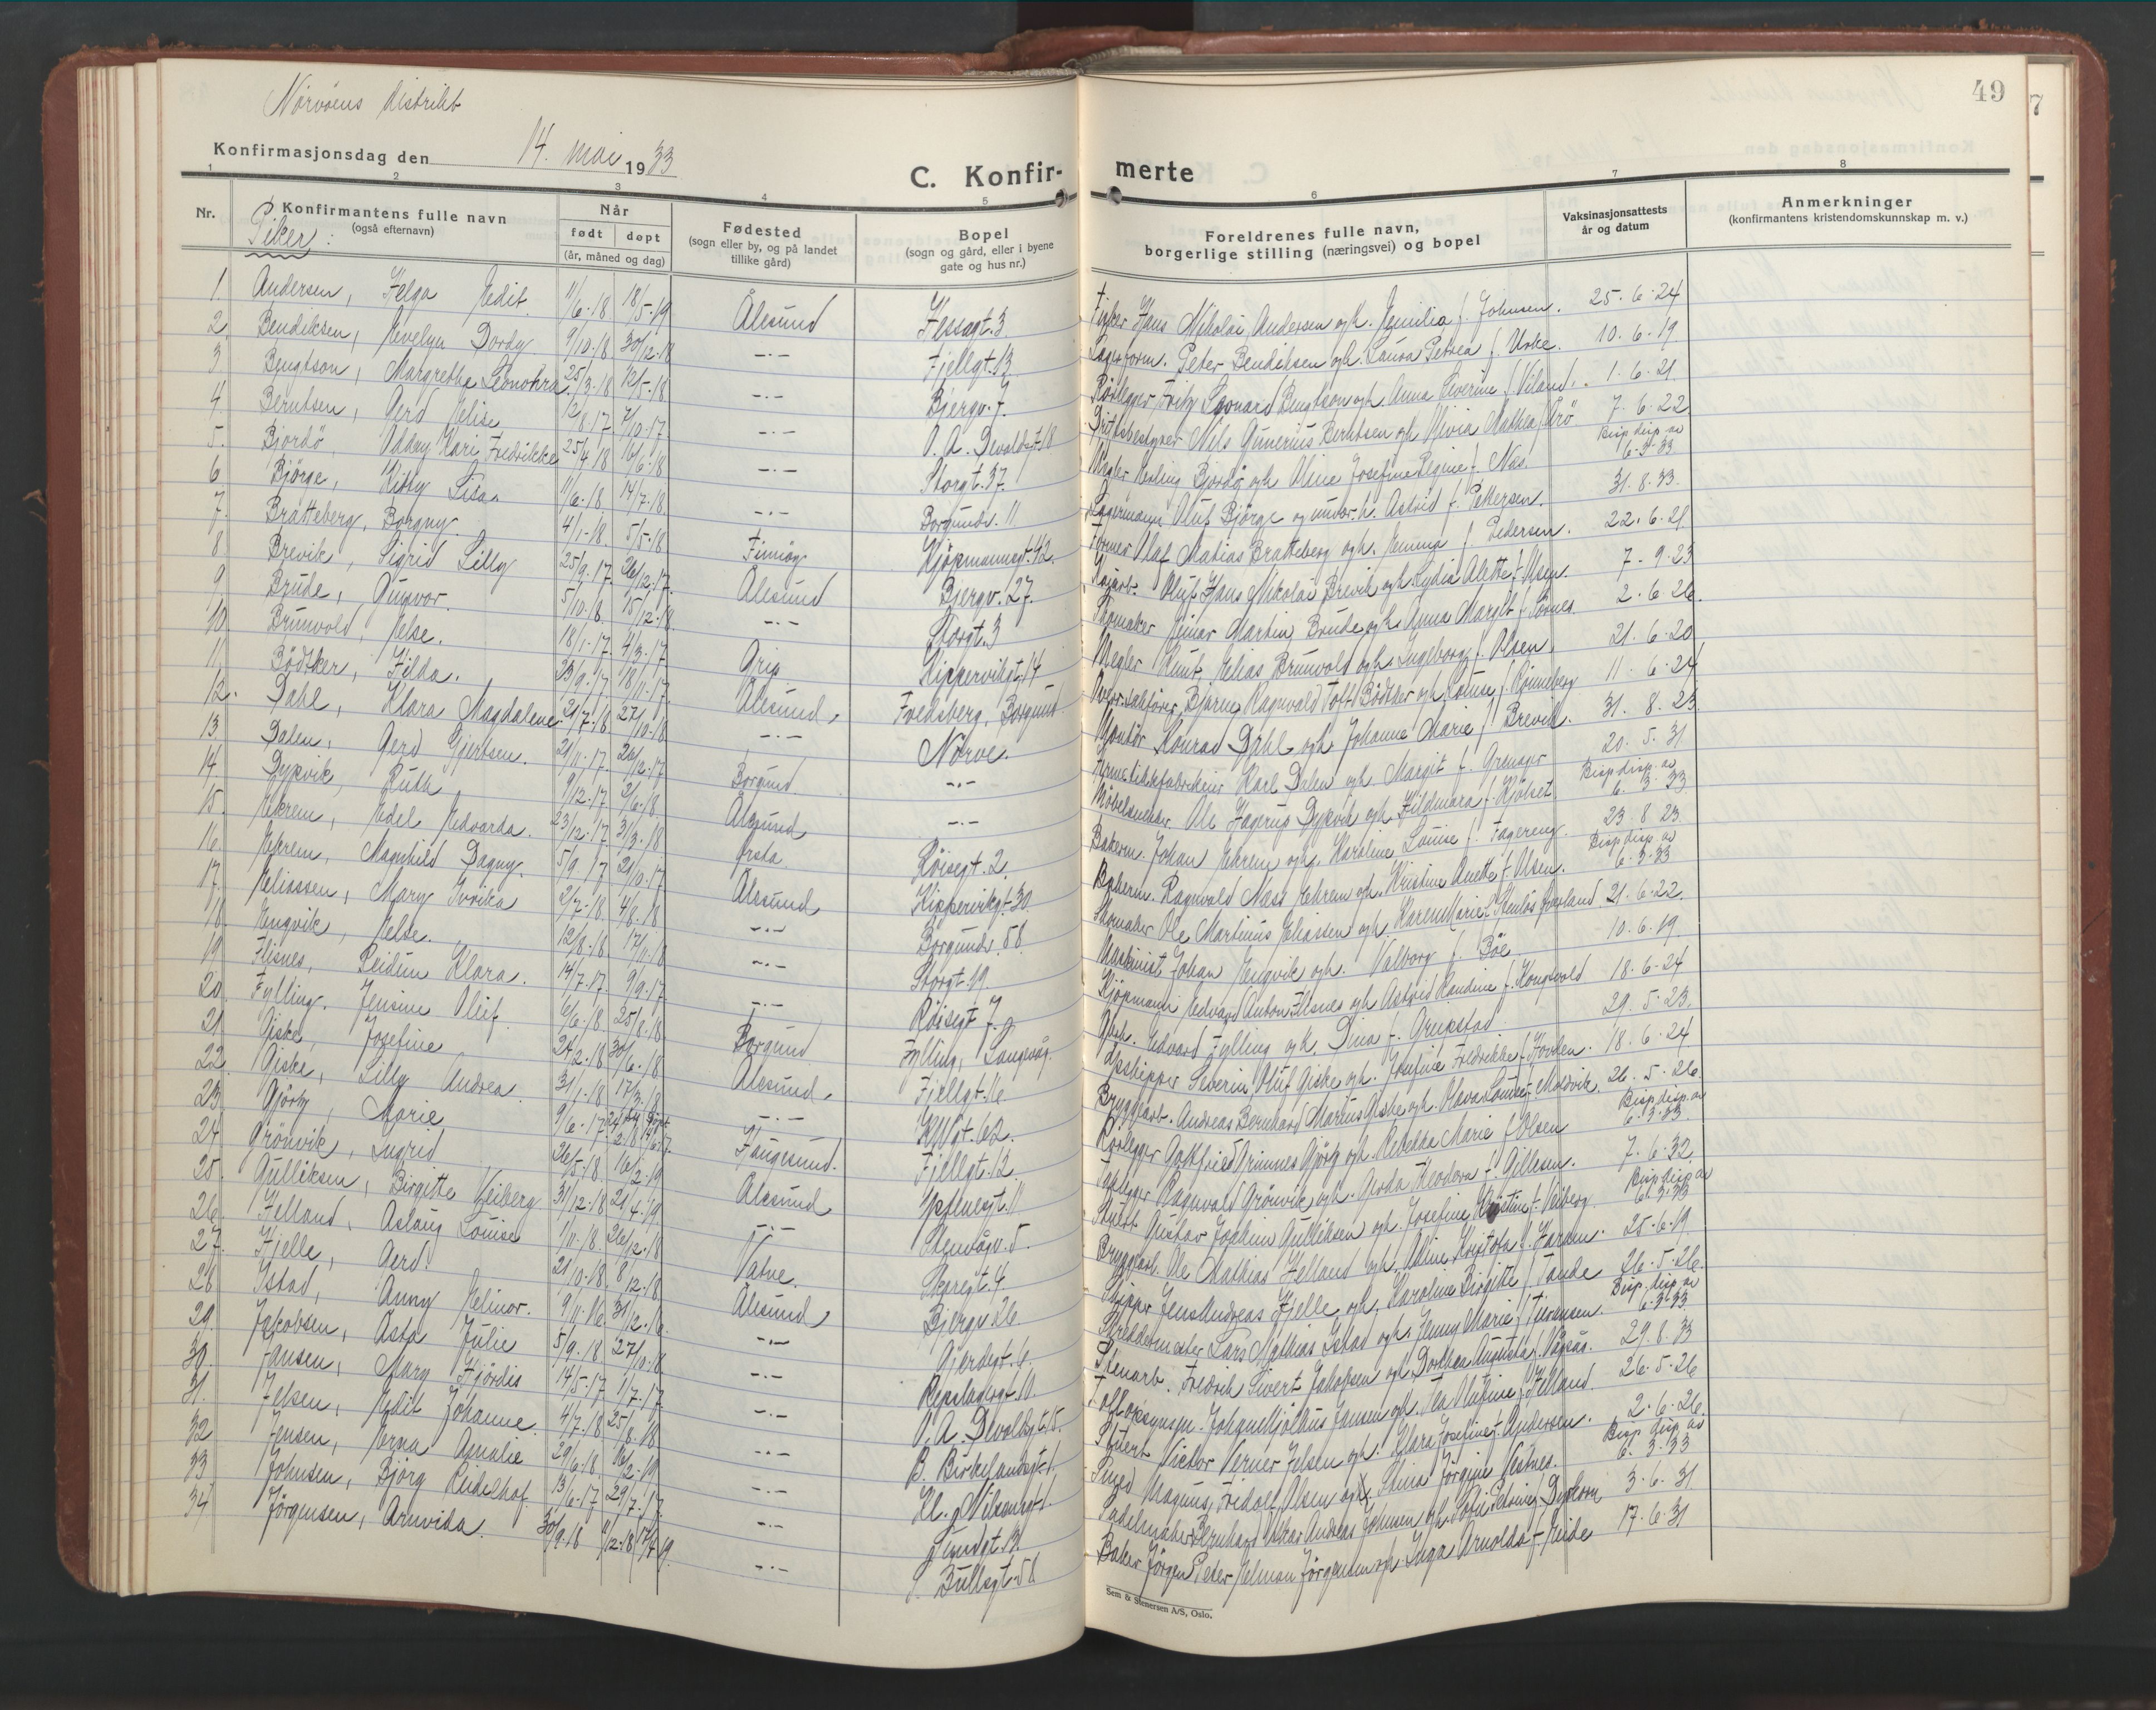 49
7
Nörvöens distrikt
Konfirmasjonsdag den 14. mai 1933
C. Konfir- merte
1 2 3 4 5 6 7 8
Nr.
Konfirmantens fulle navn
(også efternavn)
Når
født døpt
(år, måned og dag)
Fødested
(sogn eller by, og på landet
tillike gård)
Bopel
(sogn og gård, eller i byene
gate og hus nr.)
Foreldrenes fulle navn,
borgerlige stilling (næringsvei) og bopel
Vaksinasjonsattests
år og datum
Anmerkninger
(konfirmantens kristendomskunnskap m. v.)
Piker:
1. Andersen, Helga Edit. 11/6-18 18/5-19 Ålesund Hessagt. 3 Fisker Hans Nikolai Andersen og h. Emilia f. Johnsen. 25.6.24
2. Bendiksen, Evelyn Dordy 9/10-18 30/12-18 -.- Fjellgt. 13 Lagerform. Peter Bendiksen og h. Laura Petrea f. Urke. 10.6.19
3 Bengtson, Margrethe Leonohra 25/3-18 12/5-18 -.- Bjergv. 7. Rörlegger Fritz Leonard Bengtson og h. Anna Severine f. Viland. 1.6.21
4. Berntsen, Gerd Elise 12/8 17 7/10-17 -.- O. A. Devoldsgt. 18 Driftsbestyrer Nils Gunerius Berntsen og h. Mathea f. 7.6.22
5. Bjordö, Oddny Kari Fredrikke 25/4 18 16/6-18 -.- Storgt. 37. Erling Bjordö og h. Aline Josefine Regine f. Näs. Bisp. disp. av 6-3-33
6 Björge, Kitty Lisa. 11/6-18. 14/7-18. -.- Borgundv. 11 Lagermann Oluf Björge og h. Astrid f. Pettersen. 31.8.33.
7. Bratteberg, Borgny. 4/1-18. 5/5-18 Finnöy Kjöpmannsgt. 42. Former Olaf Matias Bratteberg og h. Emma f. Pedersen. 22.6.21
8. Brevik, Sigrid Lilly 25/9-17. 26/12-17. Ålesund Bjergv. 27. Oluf Hans Nikolai Brevik og h. Lydia Alette f. Olsen. 7-9-23
9. Brude, Gunvor. 5/10-18. 15/12-18. -.- Storgt. 3 Skomaker Einar Martin Brude og h. Anna Margit f. 2.6.26.
10. Brunvold, Else. 18/1-17 4/3-17 Grip Kippervikgt. 14 Megler Knut Elias Brunvold og h. Ingeborg f. Olsen. 21.6.20
11. Bödtker, Hilda. 23/9-17 18/11-17. Ålesund, Fredsberg, Borgund. Bjarne Ragnvald Toft Bödtker og h. Louise f. Rönneberg 11.6.24
12. Dahl, Klara Magdalene 21/7-18 27/10-18 -.- Nörve. Montör Konrad Dahl og h. Johanne Marie f. Brevik. 31.8.23.
13 Dalen, Gerd Gjertsen. 21/11-17. 26/12-17 Borgund. -.- Hermetikkfabrikeier Karl Dalen og h. Margit f. Grenager 20.5.31
14. Dypvik, Ruth 9/12-17 2/6-18. Ålesund -.- Möbelsnekker Ole Hagerup Dypvik og h. Hildmara f. Kjölset Bisp. disp. av 6.3.33
15. Ekrem, Edel Edvarda. 23/12-17 31/3-18 Örsta. Röisegt. 2. Bakerm. Johan Ekrem og h. Karoline Louise f. Fagereng. 23.8.23.
16. Ekrem, Magnhild Dagny. 5/9 17 21/10-17 Ålesund Kippervikgt. 30. Bakerm. Ragnvald Næss Ekrem og h. Kristine Anette f. Olsen. Bisp. disp. av 6-3-33
17. Eliassen, Mary 2/7-18. 4/8-18 -.- Borgundv. 58. Skomaker Ole Martinus Eliassen og h. Karen Marie 21.6.22.
18. Engvik, Else. 12/8-18 17/11-18 -.- Storgt. 19. Maskinist Johan Engvik og h. Valborg f. Böe 10.6.19.
19 Flisnes, Reidun Klara. 14/7-17. 9/9-17 -.- Röisegt. 7. Kjöpmann Edvard Anton Flisnes og h. Astrid Randine f. Kongsvold 18.6-24
20. Fylling. Jensine Oluf. 6/6-18. 25/8-18 Borgund Fylling, Langevåg. Gbr. Edvard Fylling og h. Dina f. Grupstad. 29.5.23.
21. Giske, Josefine 24/2-18 30/6-18 Ålesund. Fjellgt. 16 Severin Oluf Giske og h. Josefine Fredrikke f. Hovden. 18.6.24
22. Giske, Lilly Andrea. 31/1-18 17/3-18 -.- 62. Bryggearb. Andreas Bernhard Marius Giske og h. Olava Louise f. Molvik. 26.5.26
23. Gjörtz, Marie 9/6-17. Haugesund. Fjellgt. 12. Rörlegger Gotfried Grimnes Gjörtz og h. Rebekka Marie f. Olsen Bisp. disp. av 6-3-33
24. Grönvik, Ingrid 26/5-18. 16/2-19 Ålesund Ystenesgt. 11 Ragnvald Grönvik og h. Gerda Teodora f. Gillesen. 7.6.32.
25. Gulliksen, Birgitte Veiberg 31/12-18 21/4-19. -.- Stenvågv. 5. Stuert Gustav Joakim Gulliksen og h. Josefine Kristine f. Veiberg. Bisp disp. av 6.3.33
26. Helland, Aslaug Louise 1/11-18. 26/12-18 Vatne. 4. Bryggearb. Ole Mathias Helland og h. Oline Kristofa f. Haram. 25.6.19.
27. Hjelle, Gerd. 21/10-18. 8/12-18 Ålesund Bjergv. 26. Skipper Jens Andreas Hjelle og h. Karoline Birgitte f. Tande 26.5.26.
28 Istad, Anny Elinor. 9/11-16 31/12-16. -.- Gjerdegt. 6. Skreddermester Lars Mathias Istad og h. Jenny Marie f. Bisp. disp. av 6-3-33
29. Jakobsen, Asta Julie 5/9.18 27/10-18 -.- Repslagergt. 10. Stenarb. Fredrik Sivert Jakobsen og h. Dorthea Augusta f. 29.8.33
30. Jansen, Mary Hjördis 14/5-17 1/7-17. -.- O. A. Devoldsgt. 15. Johan Jansen og h. f. Helland. 26.5.26
31. Jelsen, Edit Johanne. 4/7-18 25/8-18. -.- B. Birkelandsgt. 1. Stuert Victor Verner Jelsen og h. Klara Josefine f. Andersen. 2.6.26.
32 Jensen, Erna Amalie 29/6-18. 16/2-19 -.- Kl. Nilsensgt. 1. Smed Magnus Fridolf Olsen og Stina Jörgine Vestnes. Bisp disp av 6.3.33
33 Johnsen, Björg Reidelhof. 13/6-17 29/7-17. -.- Sundgt. 12. Sadelmaker Bernhard Oskar Andreas Johnsen og h. f. 3.6.31
34 Jörgensen, Arnvida. 30/9-18 -.- Bullsgt. 58 Baker Jörgen Peter Elman Jörgensen og h. Inga Arnolda f. Eide 17.6.31
Sem & Stenersen A/S, Oslo.